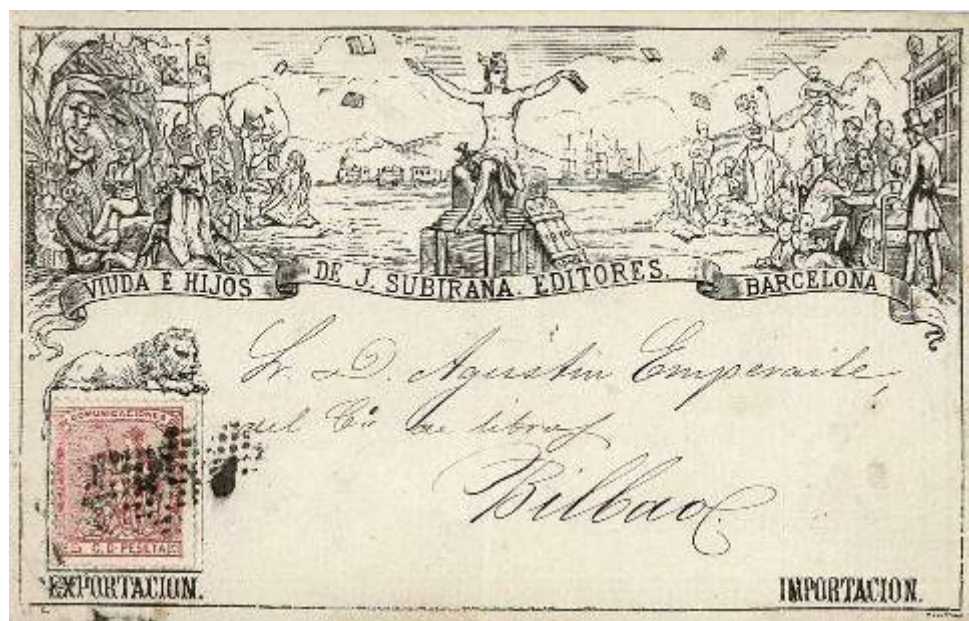 VIUDA E HIJOS DE J. SUBIRANA. EDITORES. BARCELONA
Sr. D. Agustin Emperaile,
del Co. de libros
Bilbao.
COMUNICACIONES
C. D. PESETA
EXPORTACION. IMPORTACION.